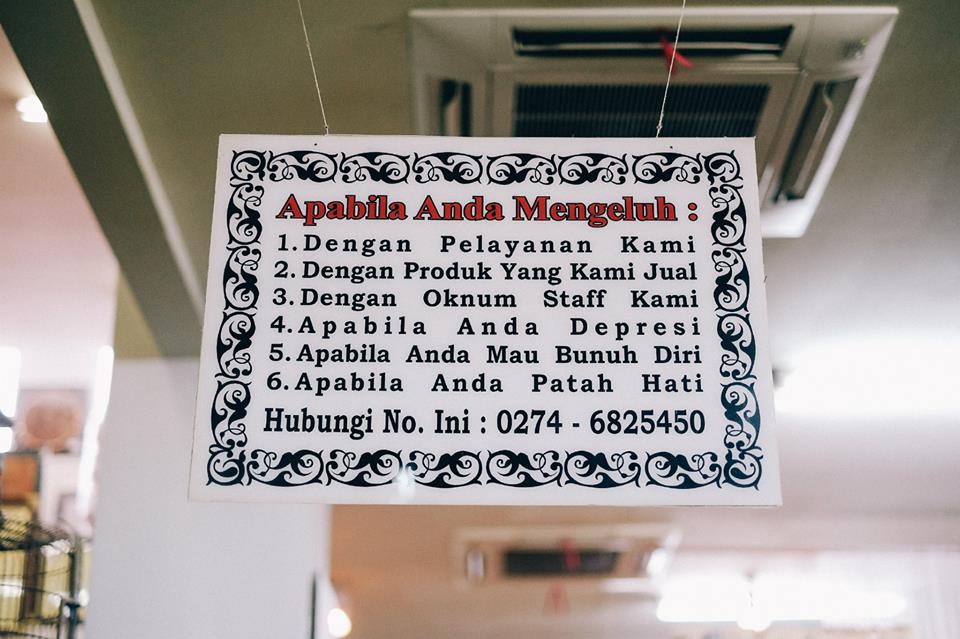 Apabila Anda Mengeluh :
1. Dengan Pelayanan Kami
2. Dengan Produk Yang Kami Jual
3. Dengan Oknum Staff Kami
4. Apabila Anda Depresi
5. Apabila Anda Mau Bunuh Diri
6. Apabila Anda Patah Hati
Hubungi No. Ini : 0274 - 6825450